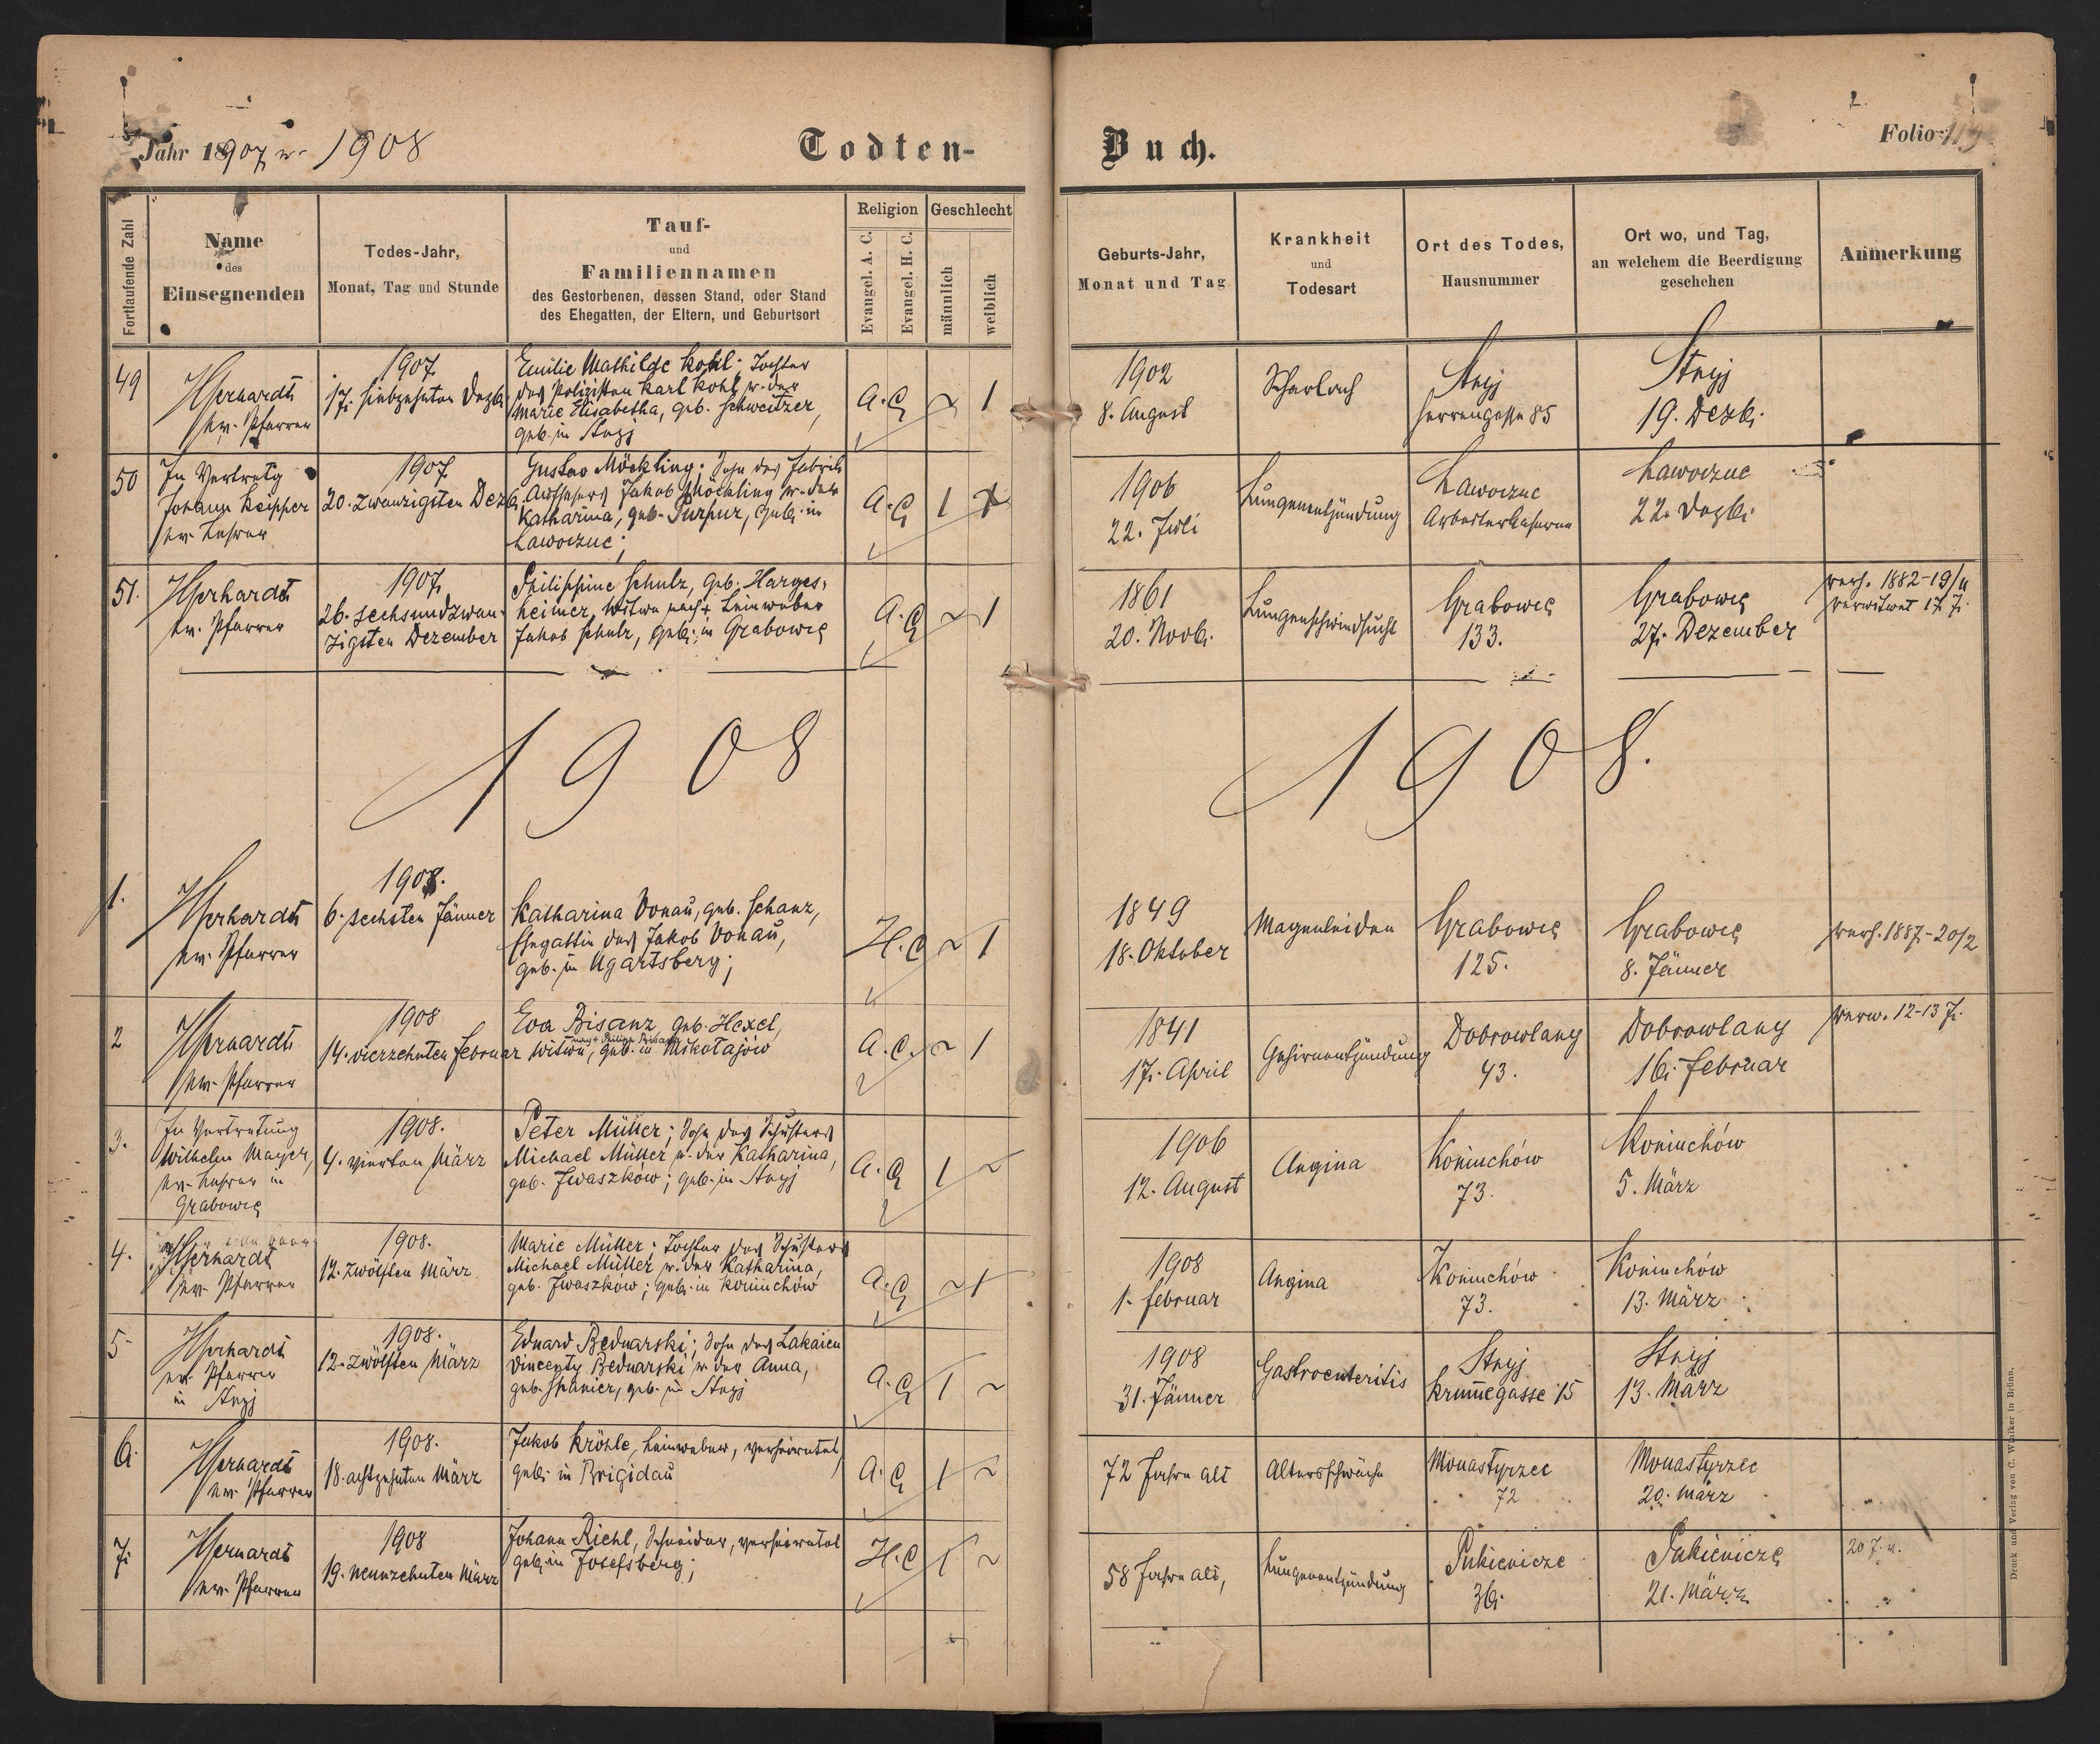 Jahr 1907 u. 1908
Todten-
Buch.
Folio 119
Fortlaufende Zahl
Name
des
Einsegnenden
Todes-Jahr,
Monat, Tag und Stunde
Tauf-
und
Familiennamen
des Gestorbenen, dessen Stand, oder Stand
des Ehegatten, der Eltern, und Geburtsort
Religion
Evangel. A. C.
Evangel. H. C.
Geschlecht
männlich
weiblich
Geburts-Jahr,
Monat und Tag
Krankheit
und
Todesart
Ort des Todes,
Hausnummer
Ort wo, und Tag,
an welchem die Beerdigung
geschehen
Anmerkung
49
ev. Pfarrer
1907
17. siebzehnten Dezb.
Emilie Mathilde Kohl; Tochter
des Polizisten Karl Kohl u. der
Marie Elisabetha, geb. Schweitzer,
geb. in Stryj
A. C.
~ 1
1902
8. August
Scharlach
Stryj
Herrengasse 85
Stryj
19. Dezb.
50
In Vertretg
Johann Keipper
ev. Lehrer
1907
20. zwanzigsten Dezb.
Gustav Möckling; Sohn des Fabriks
Aufsehers Jakob Möckling u. der
Katharina, geb. Purpur, geb. in
Lawoczne;
A. C.
1 ~
1906
22. Juli
Lungenentzündung
Lawoczne
Arbeiterkaserne
Lawoczne
22. Dezb.
51.
ev. Pfarrer
1907
26. sechsundzwan-
zigsten Dezember
Philippine Schulz, geb. Harges-
heimer, Witwe nach + Leinweber
Jakob Schulz, geb. in Grabowce
A. C.
~ 1
1861
20. Novb.
Lungenschwindsucht
Grabowce
133.
Grabowce
27. Dezember
verh. 1882-19/11
verwitwet 17 J.
1908
1908.
1.
ev. Pfarrer
1908.
6. sechsten Jänner
Katharina Donau, geb. Schanz,
Ehegattin des Jakob Donau,
geb. in Ugartsberg;
H. C.
~ 1
1849
18. Oktober
Magenleiden
Grabowce
125.
Grabowce
8. Jänner
verh. 1887-20/2
2
ev. Pfarrer
1908
14. vierzehnten Februar
Eva Bisanz, geb. Hexel,
Witwe, geb. in Mikołajów
A. C.
~ 1
1841
17. April
Gehirnentzündung
Dobrowlany
43.
Dobrowlany
16. Februar
verw. 12-13 J.
3.
In Vertretung
Wilhelm Mayer,
ev. Lehrer in
Grabowce
1908.
4. vierten März
Peter Müller; Sohn des Schusters
Michael Müller u. der Katharina,
geb. Iwaszków; geb. in Stryj
A. C.
1 ~
1906
12. August
Angina
Koniuchów
73.
Koniuchów
5. März
4.
ev. Pfarrer
1908.
12. zwölften März
Marie Müller; Tochter des Schusters
Michael Müller u. der Katharina,
geb. Iwaszków; geb. in Koniuchów
A. C.
~ 1
1908
1. Februar
Angina
Koniuchów
73.
Koniuchów
13. März
5
ev. Pfarrer
in Stryj
1908.
12. zwölften März
Eduard Bednarski; Sohn des Lakaien
Vincenty Bednarski u. der Anna,
geb. Spanier, geb. in Stryj
A. C.
1 ~
1908
31. Jänner
Gastroenteritis
Stryj
Krummegasse 15
Stryj
13. März
6.
ev. Pfarrer
1908.
18. achtzehnten März
Jakob Kröhle, Leinweber, verheiratet,
geb. in Brigidau
A. C.
1 ~
72 Jahre alt
Altersschwäche
Monastyrzec
72
Monastyrzec
20. März
7.
ev. Pfarrer
1908
19. neunzehnten März
Johann Riehl, Schneider, verheiratet
geb. in Josefsberg;
H. C.
1 ~
58 Jahre alt,
Lungenentzündung
Pukienicze
36.
Pukienicze
21. März
20 J.
Druck und Verlag von C. Winiker in Brünn.